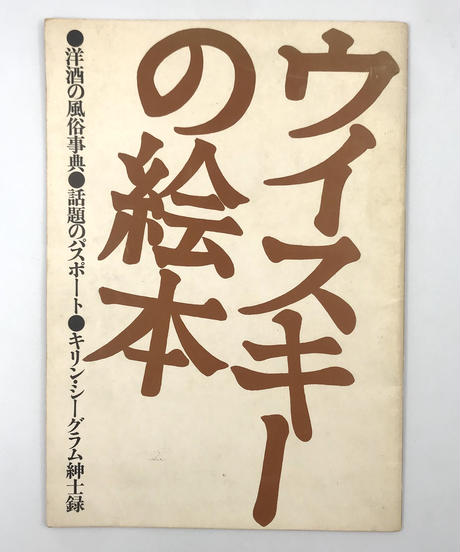 ウイスキー
の絵本
●洋酒の風俗事典●話題のパスポート●キリン・シーグラム紳士録